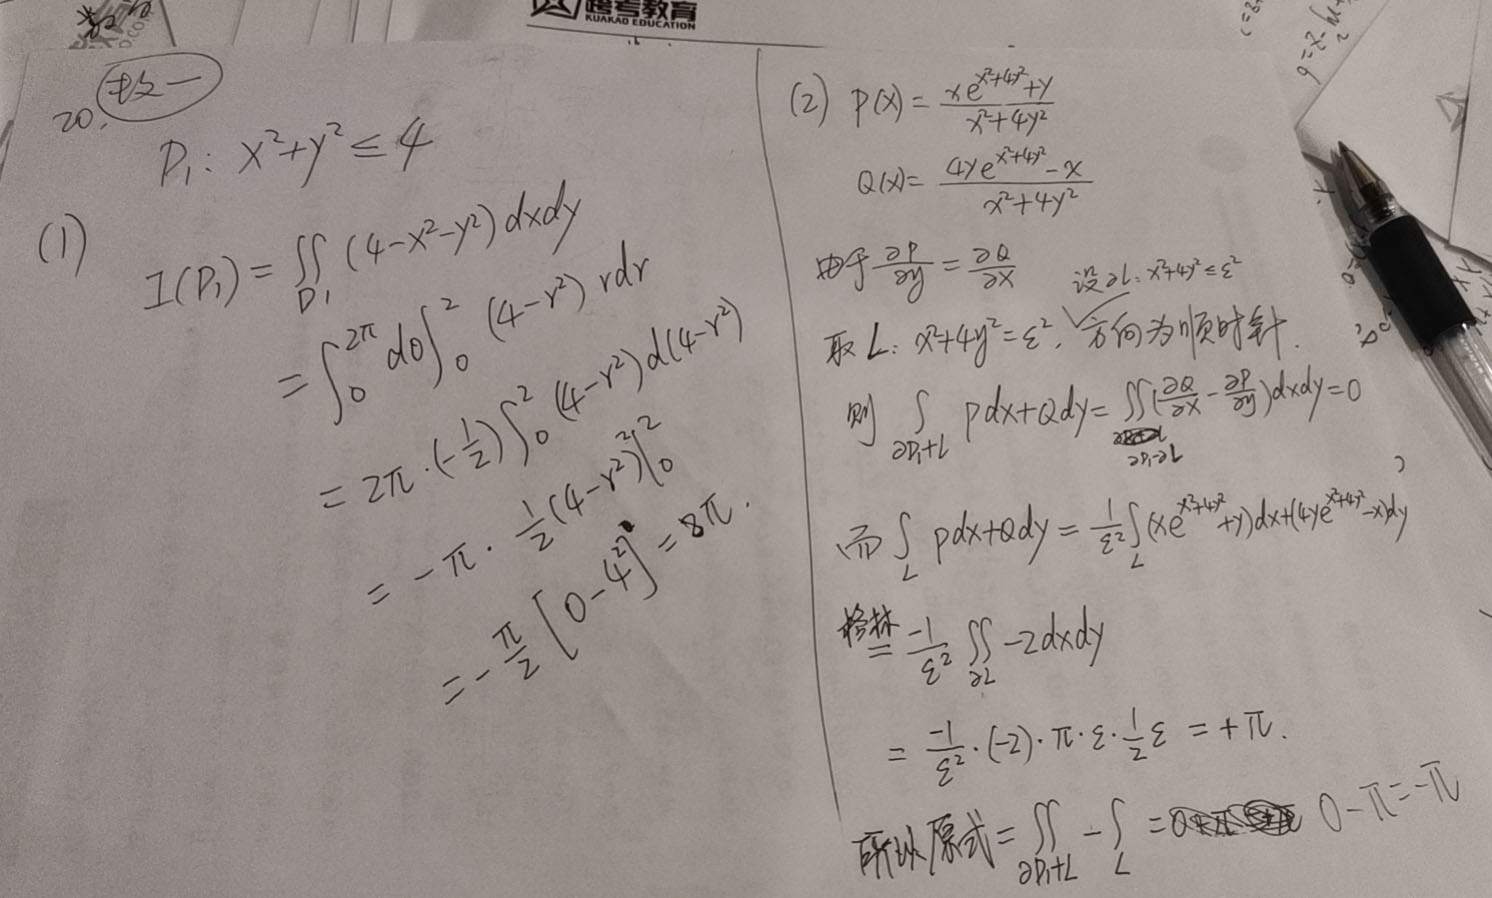 跨考教育
KUAKAO EDUCATION
数一
20.
D₁: x²+y²≤4
(1)
I(D₁) = ∬_{D₁} (4-x²-y²) dxdy
= ∫₀^{2π} dθ ∫₀² (4-r²) rdr
= 2π·(-1/2) ∫₀² (4-r²) d(4-r²)
= -π · 1/2 (4-r²)² |₀²
= -π/2 [0-4²] = 8π.
(2) P(x) = (xe^{x²+4y²}+y)/(x²+4y²)
Q(x) = (4ye^{x²+4y²}-x)/(x²+4y²)
由于 ∂P/∂y = ∂Q/∂x
设∂L: x²+4y²≤ε²
取L: x²+4y²=ε², 方向为顺时针.
则 ∫_{∂D₁+L} Pdx+Qdy = ∬_{∂D₁-∂L} (∂Q/∂x - ∂P/∂y) dxdy = 0,
而 ∫_L Pdx+Qdy = 1/ε² ∫_L (xe^{x²+4y²}+y)dx+(4ye^{x²+4y²}-x)dy
格林 = -1/ε² ∬_{∂L} -2dxdy
= -1/ε² · (-2) · π · ε · 1/2 ε = +π.
所以原式 = ∬_{∂D₁+L} - ∫_L = 0-π = -π